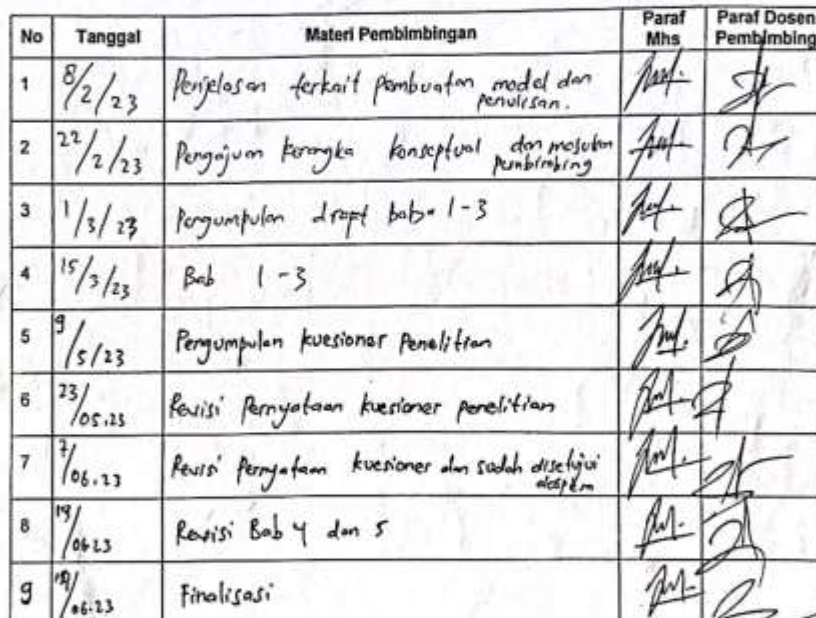 No Tanggal Materi Pembimbingan Paraf Mhs Paraf Dosen Pembimbing
1 8/2/23 Penjelasan terkait pembuatan model dan penulisan.
2 22/2/23 Pengajuan kerangka konseptual dan masukan pembimbing
3 1/3/23 Pengumpulan drapt bab 1-3
4 15/3/23 Bab 1-3
5 9/5/23 Pengumpulan kuesioner Penelitian
6 23/05.23 Revisi Pernyataan kuesioner penelitian
7 7/06.23 Revisi Pernyataan kuesioner dan sudah disetujui
8 /06.23 Revisi Bab 4 dan 5
9 /06.23 Finalisasi